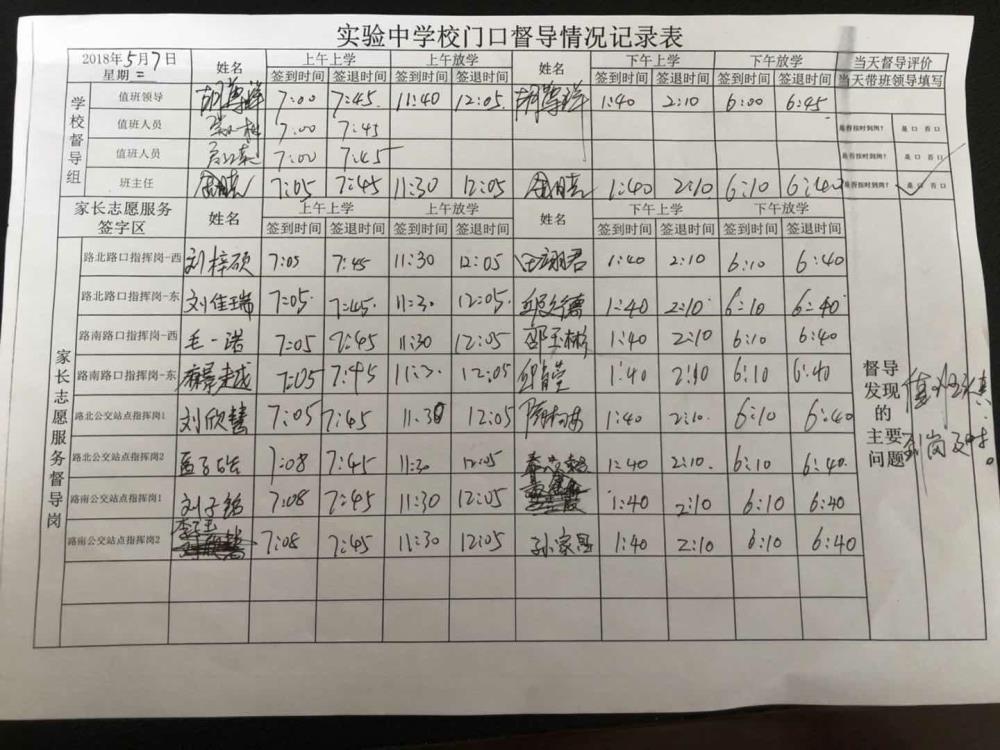 实验中学校门口督导情况记录表
2018年5月7日
星期二 姓名 上午上学 上午放学 姓名 下午上学 下午放学 当天督导评价
签到时间 签退时间 签到时间 签退时间 签到时间 签退时间 签到时间 签退时间 当天带班领导填写
学校督导组
值班领导 7:00 7:45 11:40 12:05 1:40 2:10 6:00 6:45
值班人员 7:00 7:45 是否按时到岗? 是口 否口
值班人员 7:00 7:45 是否按时到岗? 是口 否口
班主任 7:05 7:45 11:30 12:05 1:40 2:10 6:10 6:40 是否按时到岗? 是口 否口
家长志愿服务签字区 姓名 上午上学 上午放学 姓名 下午上学 下午放学
签到时间 签退时间 签到时间 签退时间 签到时间 签退时间 签到时间 签退时间
家长志愿服务督导岗
路北路口指挥岗-西 刘梓硕 7:05 7:45 11:30 12:05 1:40 2:10 6:10 6:40
路北路口指挥岗-东 刘佳瑞 7:05 7:45 11:30 12:05 1:40 2:10 6:10 6:40
路南路口指挥岗-西 毛一诺 7:05 7:45 11:30 12:05 邵玉彬 1:40 2:10 6:10 6:40
路南路口指挥岗-东 7:05 7:45 11:30 12:05 1:40 2:10 6:10 6:40
路北公交站点指挥岗1 刘欣慧 7:05 7:45 11:30 12:05 1:40 2:10 6:10 6:40
路北公交站点指挥岗2 7:08 7:45 11:30 12:05 1:40 2:10 6:10 6:40
路南公交站点指挥岗1 刘子铭 7:08 7:45 11:30 12:05 1:40 2:10 6:10 6:40
路南公交站点指挥岗2 7:08 7:45 11:30 12:05 孙家昌 1:40 2:10 6:10 6:40
督导发现的主要问题
到岗及时。